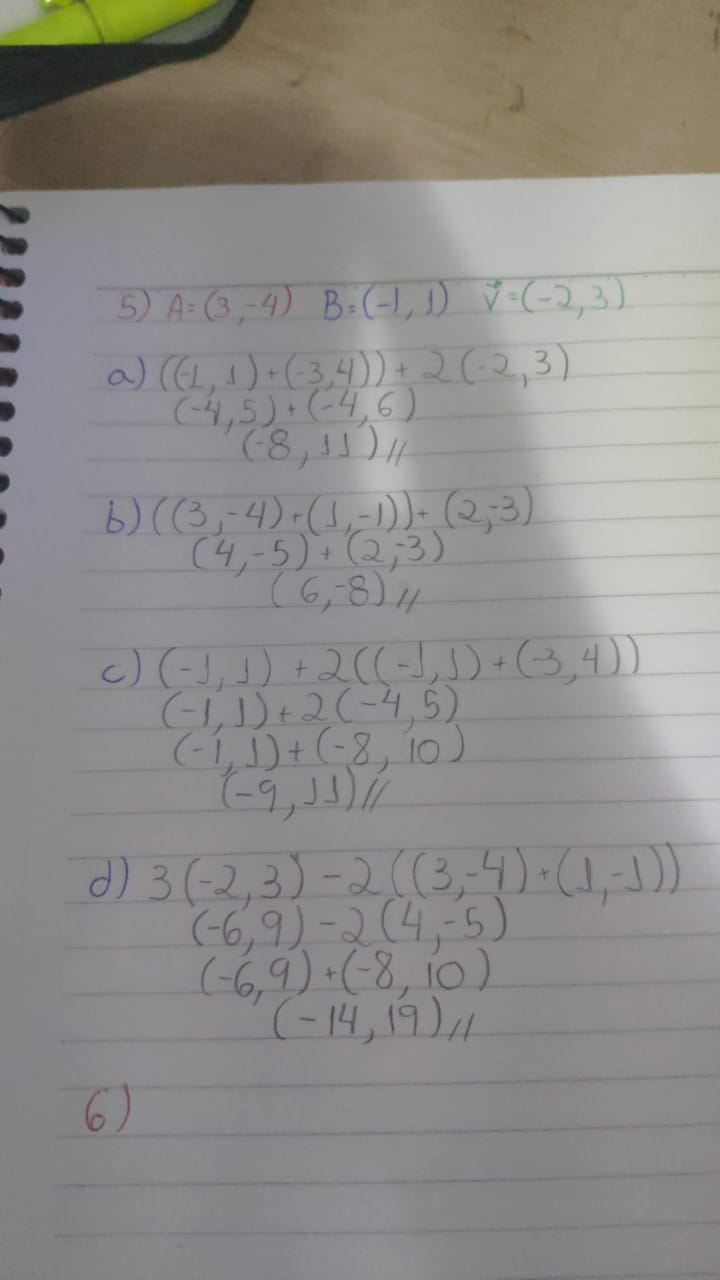 5) A=(3,-4) B=(-1,1) v⃗=(-2,3)
a) ((-1,1)+(-3,4))+2(-2,3)
(-4,5)+(-4,6)
(-8,11)//
b) ((3,-4)+(1,-1))+(2,-3)
(4,-5)+(2,-3)
(6,-8)//
c) (-1,1)+2((-1,1)+(-3,4))
(-1,1)+2(-4,5)
(-1,1)+(-8,10)
(-9,11)//
d) 3(-2,3)-2((3,-4)+(1,-1))
(-6,9)-2(4,-5)
(-6,9)+(-8,10)
(-14,19)//
6)